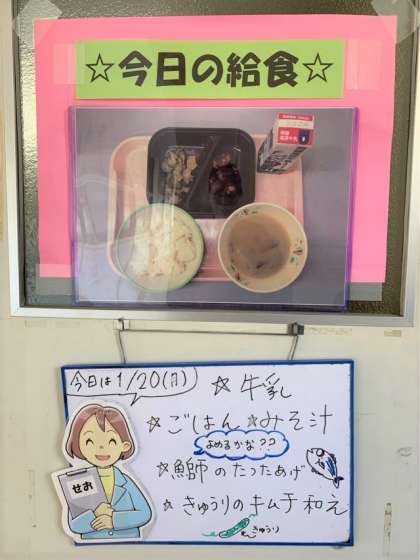 ☆今日の給食☆
今日は1/20(月)
☆牛乳
☆ごはん ☆みそ汁
よめるかな??
☆鰤のたつたあげ
☆きゅうりのキムチ和え
きゅうり
せお